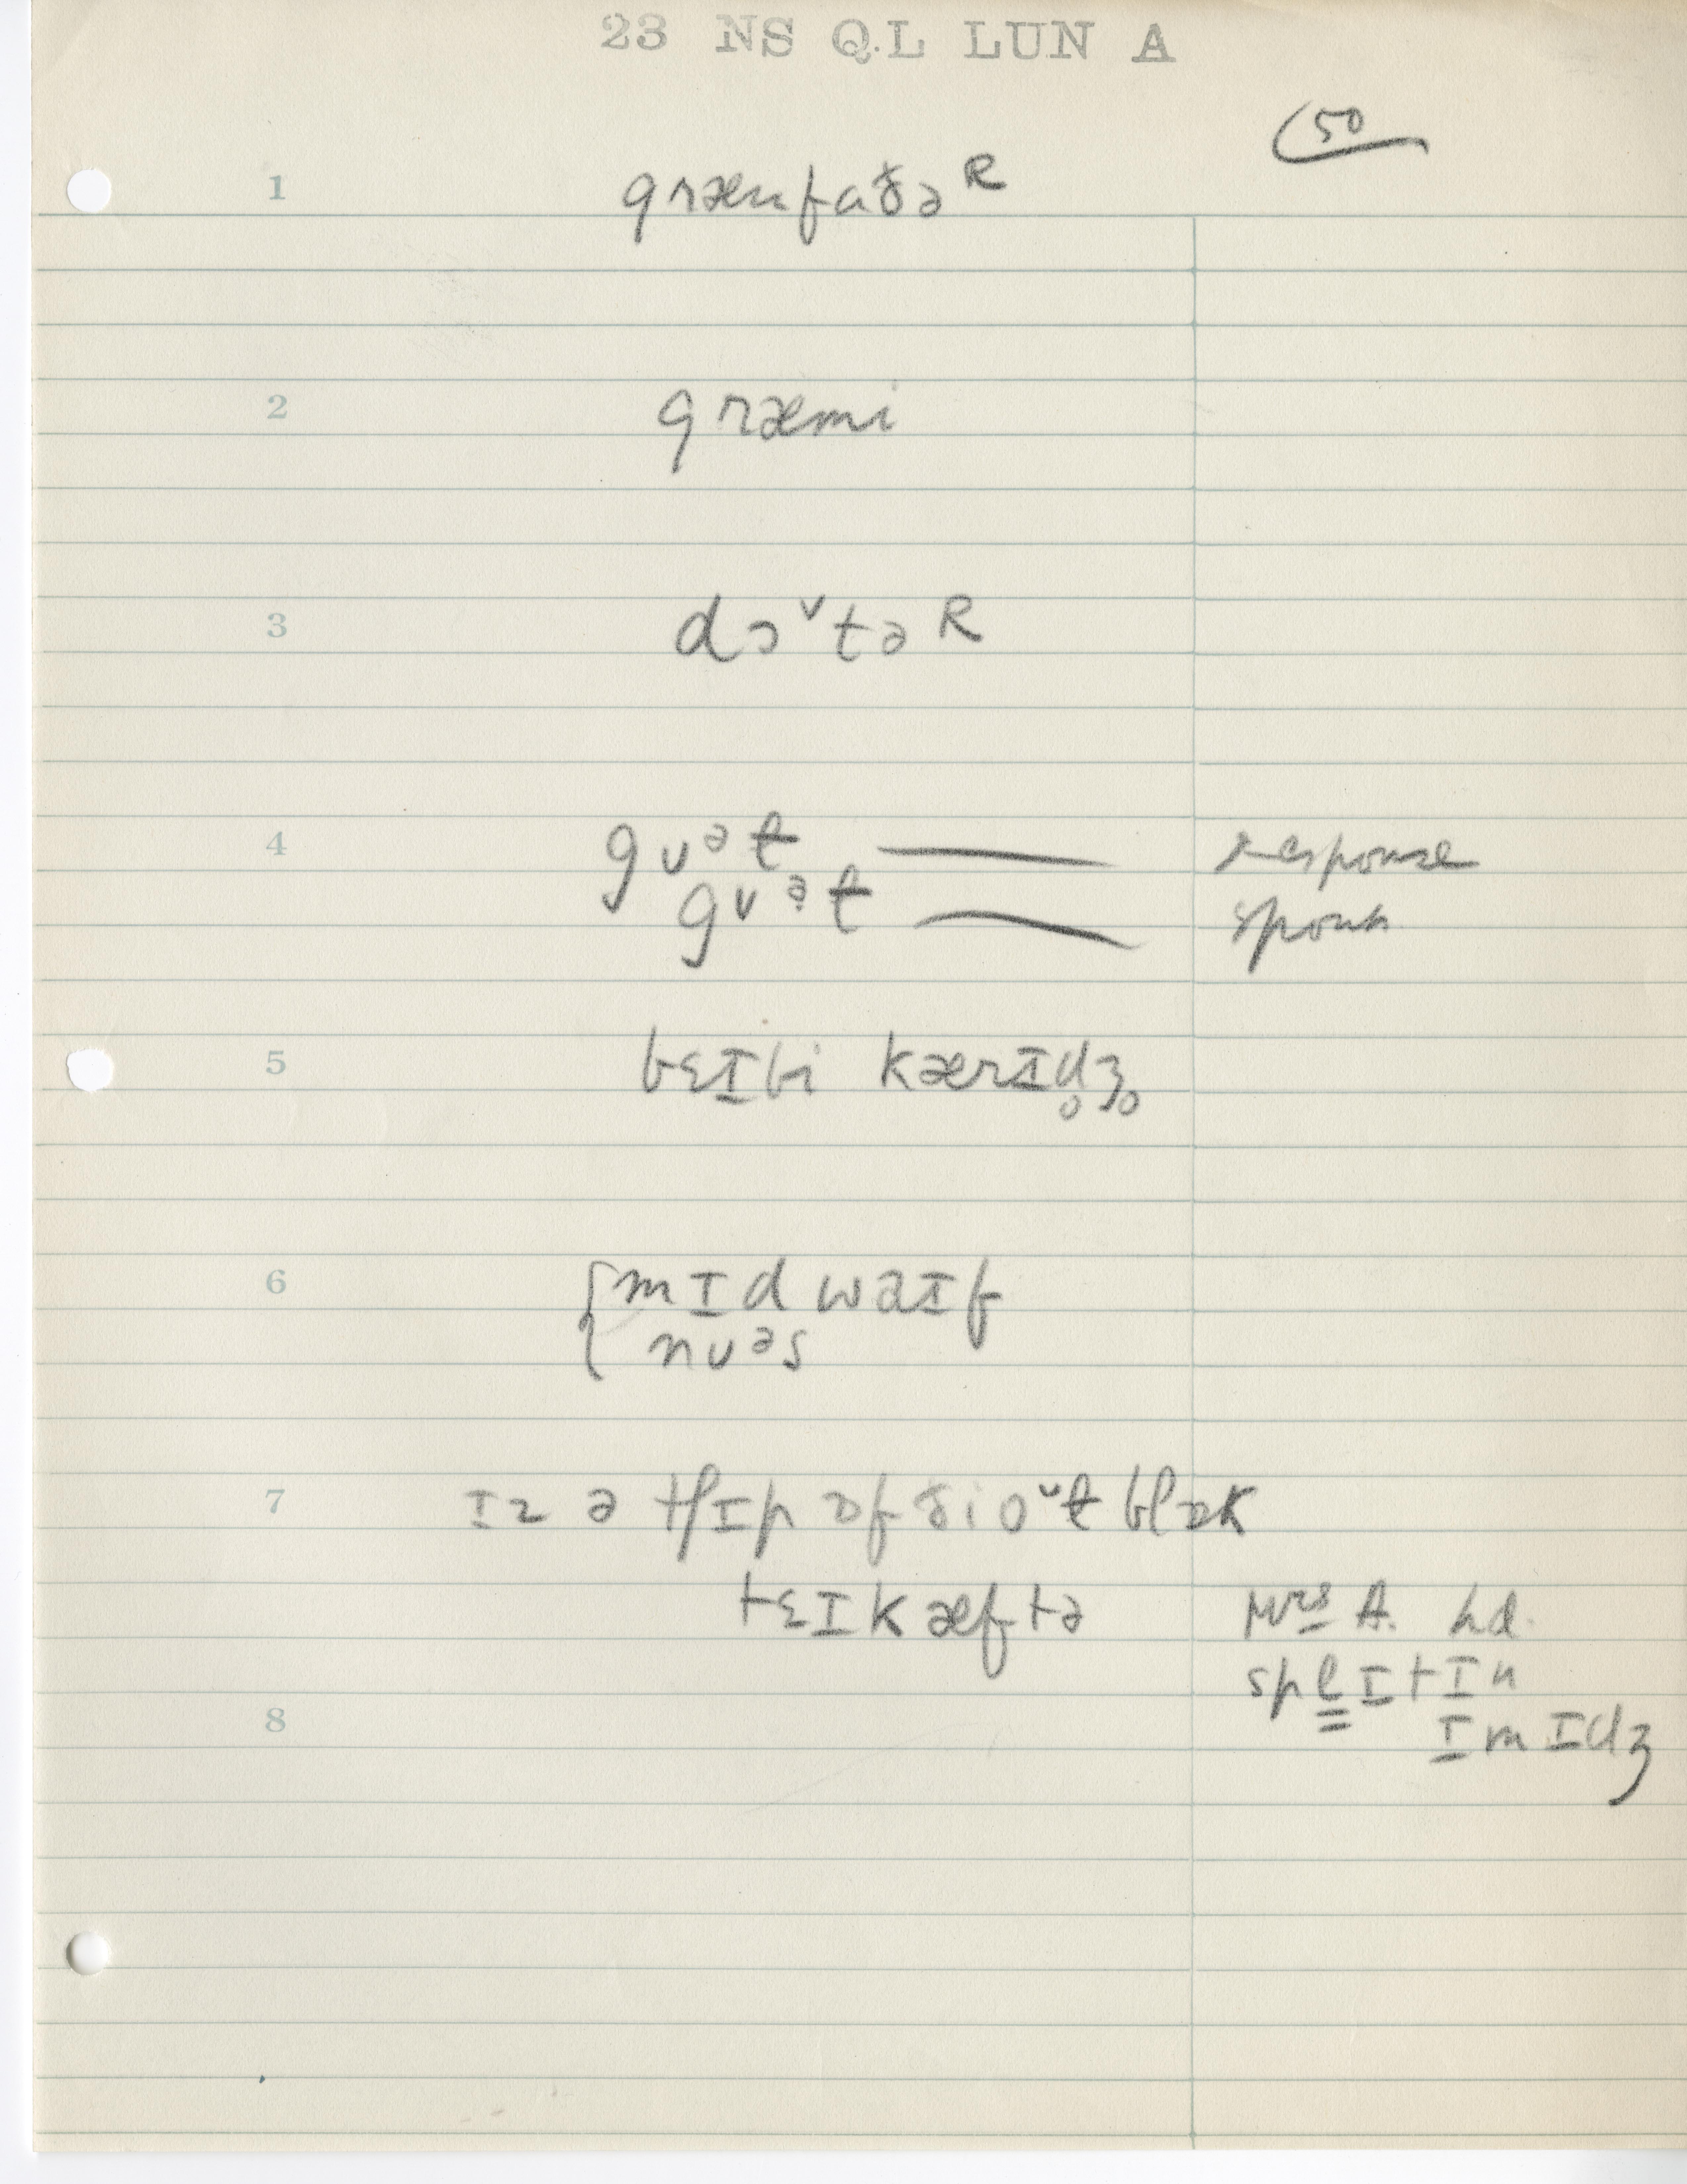 23 NS QL LUN A
50
1 grænfaðə ᴿ
2 græmi
3 dɔ ˅ tə ᴿ
4 gʊᵊɫ — response
gʊᵊ̣ɫ — spont
5 bɛɪ̠bi kærɪd̥ʒ̥
6 { mɪd waɪf
nʊᵊs
7 ɪz ə tʃɪp ɒf ði o˅ɫ blɒk
tɛɪk æftə Mrs A. hd.
splɪtɪn
8 ɪmɪdʒ